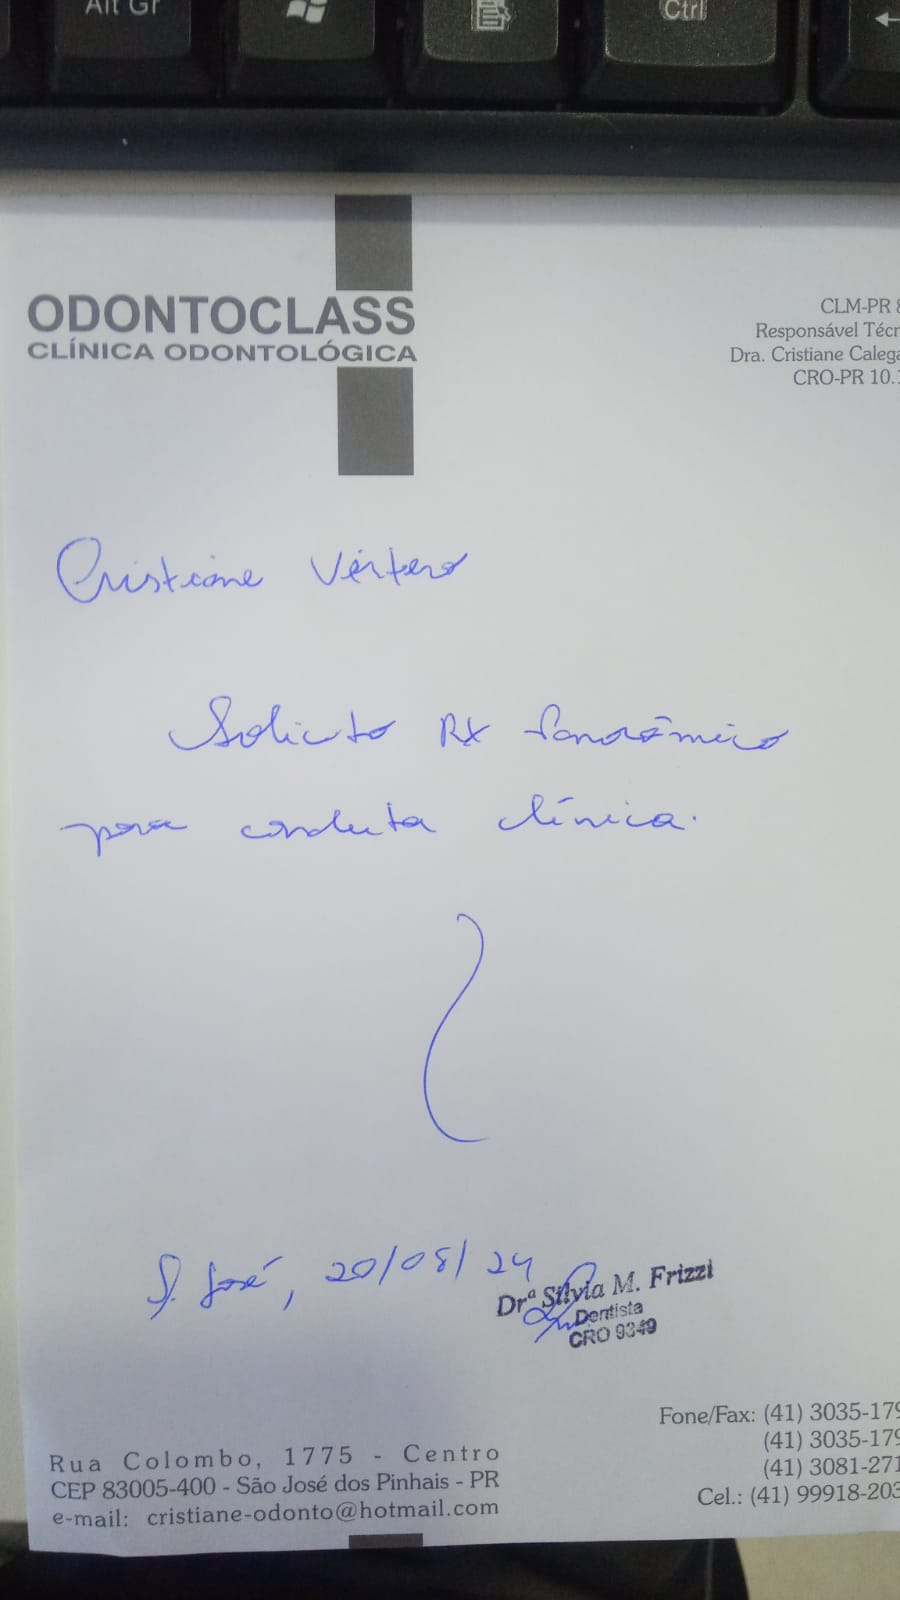 Alt Gr
Ctrl
ODONTOCLASS
CLÍNICA ODONTOLÓGICA
CLM-PR
Responsável Técn
Dra. Cristiane Calega
CRO-PR 10.
Cristiane
Solicito RX Panorâmico
para conduta clínica.
S. José, 20/08/24
Drª Silvia M. Frizzi
Dentista
CRO 9349
Rua Colombo, 1775 - Centro
CEP 83005-400 - São José dos Pinhais - PR
e-mail: cristiane-odonto@hotmail.com
Fone/Fax: (41) 3035-179
(41) 3035-179
(41) 3081-271
Cel.: (41) 99918-203